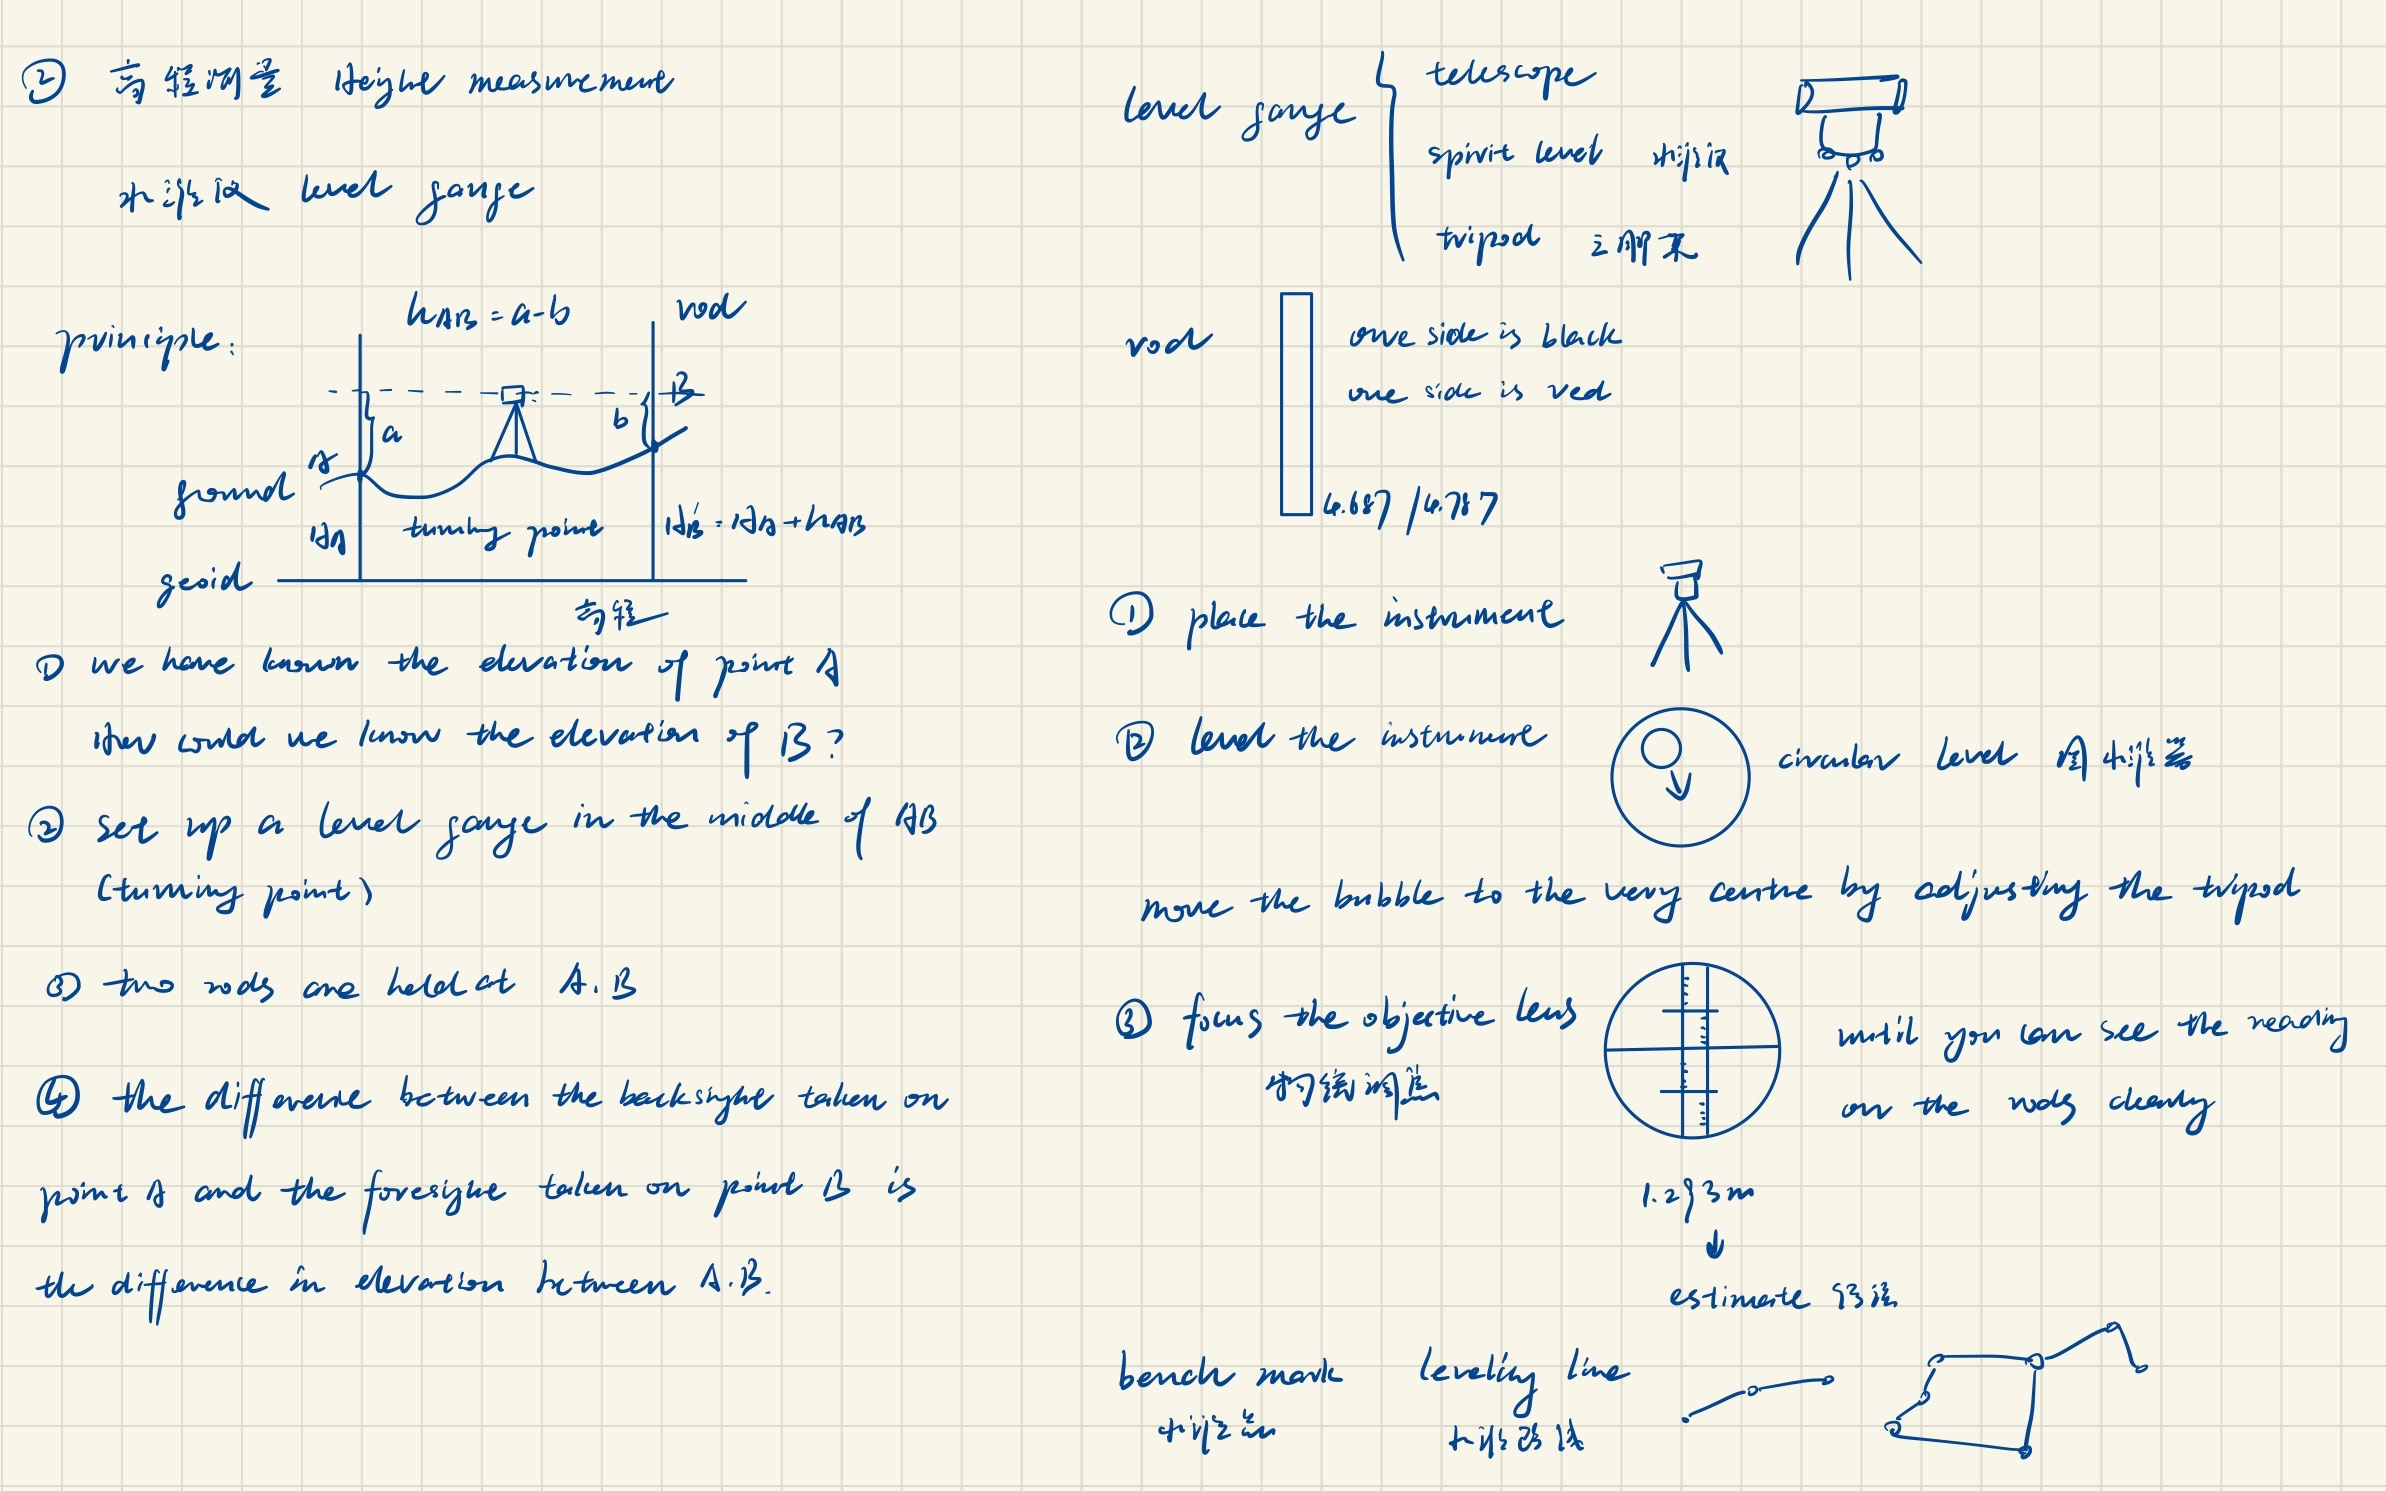 ② 高程测量 Height measurement
水准仪 level gauge
principle:
hAB = a-b
rod
B
a
b
A
ground
HA
turning point
HB = HA + hAB
geoid
高程
① we have known the elevation of point A
How could we know the elevation of B?
② set up a level gauge in the middle of AB
(turning point)
③ two rods are held at A.B
④ the difference between the backsight taken on
point A and the foresight taken on point B is
the difference in elevation between A.B.
level gauge
telescope
spirit level 水准仪
tripod 三脚架
rod
one side is black
one side is red
4.687 / 4.787
① place the instrument
② level the instrument
circular level 圆水准器
move the bubble to the very centre by adjusting the tripod
③ focus the objective lens
物镜调焦
until you can see the reading
on the rods clearly
estimate 估读
bench mark
水准点
leveling line
水准路线